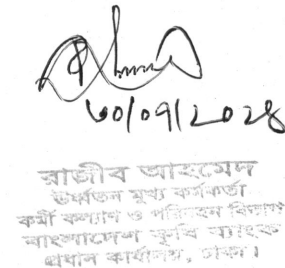 ৩০/০৭/২০২৪
রাজীব আহমেদ
ঊর্ধ্বতন মুখ্য কর্মকর্তা
কর্মী কল্যাণ ও পরিবহন বিভাগ
বাংলাদেশ কৃষি ব্যাংক
প্রধান কার্যালয়, ঢাকা।